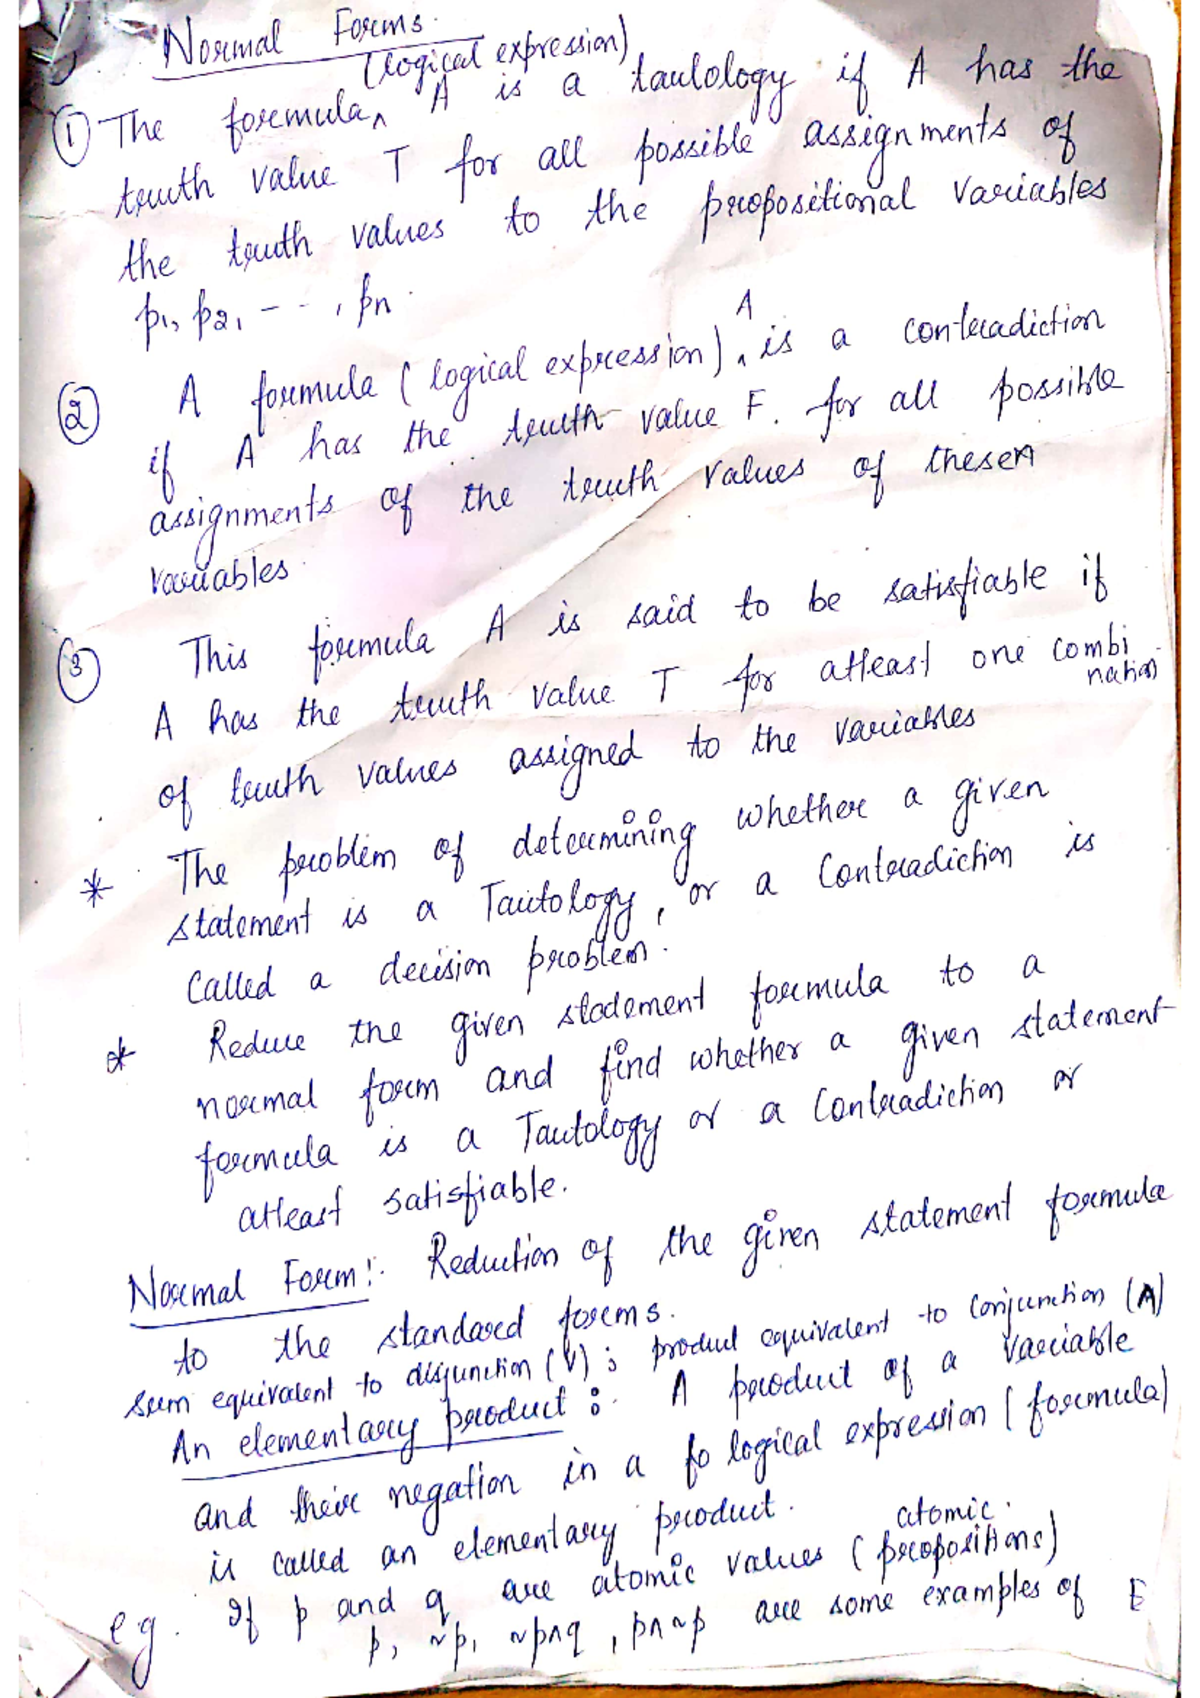 Normal Forms.
(logical expression)
① The formula ^ A is a taulology if A has the
truth value T for all possible assignments of
the truth values to the propositional variables
p1, p2, - - , pn.
A
② A formula (logical expression) ^ is a contradiction
if A has the truth value F. for all possible
assignments of the truth values of these n
variables.
③ This formula A is said to be satisfiable if
A has the truth value T for atleast one combi
nation
of truth values assigned to the variables
* The problem of determining whether a given
statement is a Tautology, or a Contradiction is
Called a decision problem.
* Reduce the given statement formula to a
normal form and find whether a given statement
formula is a Tautology or a Contradiction or
atleast satisfiable.
Normal Form :. Reduction of the given statement formula
to the standard forms.
sum equivalent to disjunction (V) ; product equivalent to Conjunction (Λ)
An elementary product :. A product of a variable
and their negation in a fo logical expression (formula)
is called an elementary product.
atomic.
e g. If p and q are atomic values (propositions)
p, ~p, ~p∧q, p∧~p are some examples of E